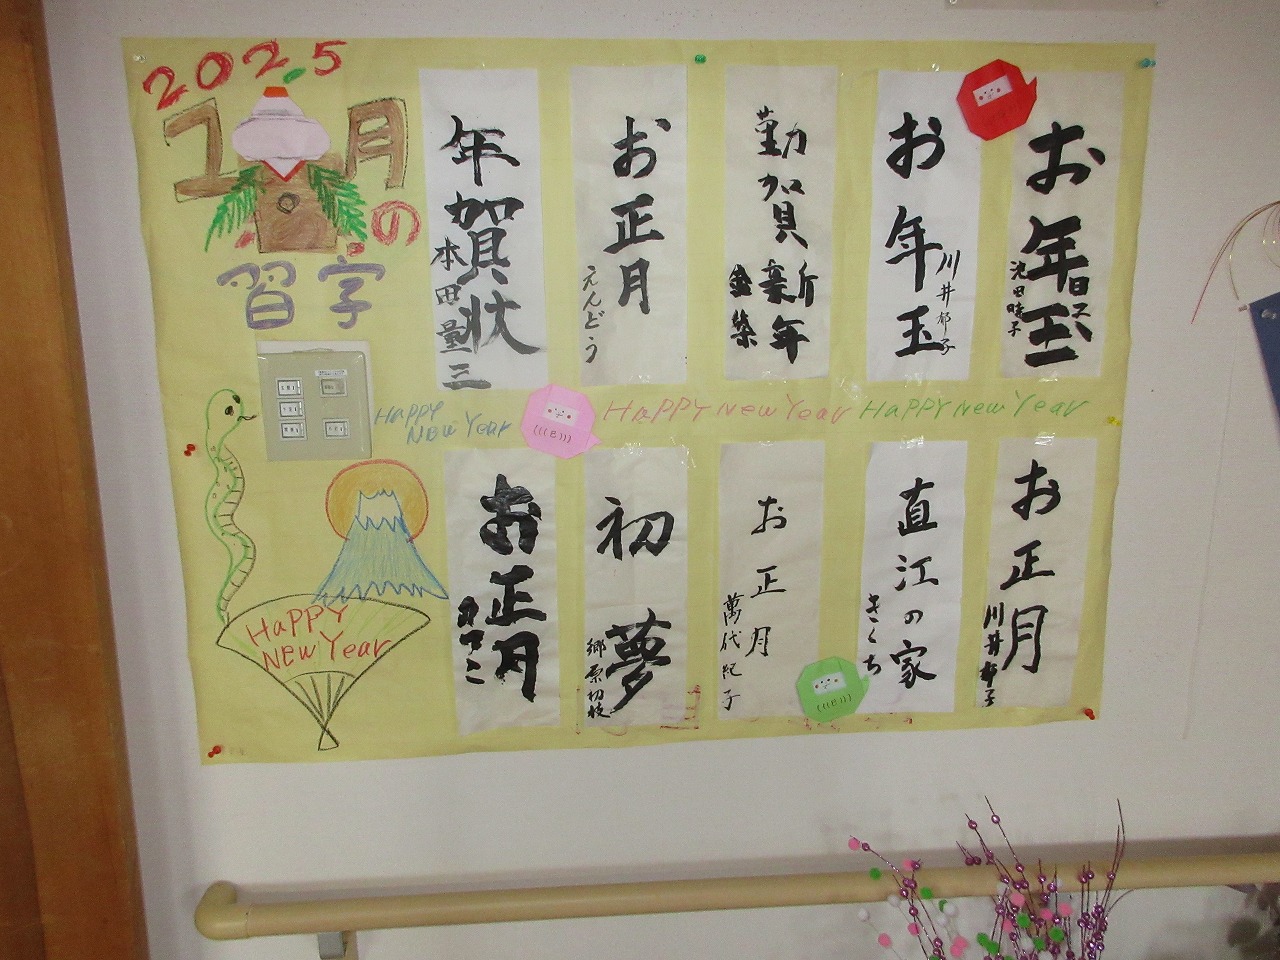 2025
1月の
習字
お年玉
お年玉
川井郁子
勤賀
新年
金築
お正月
えんどう
年賀状
本田量三
HAPPY New Year
HAPPY New Year
HAPPY New Year
お正月
川井郁子
直江の家
きくち
お正月
萬代紀子
初夢
郷原初枝
お正月
HAPPY
New Year